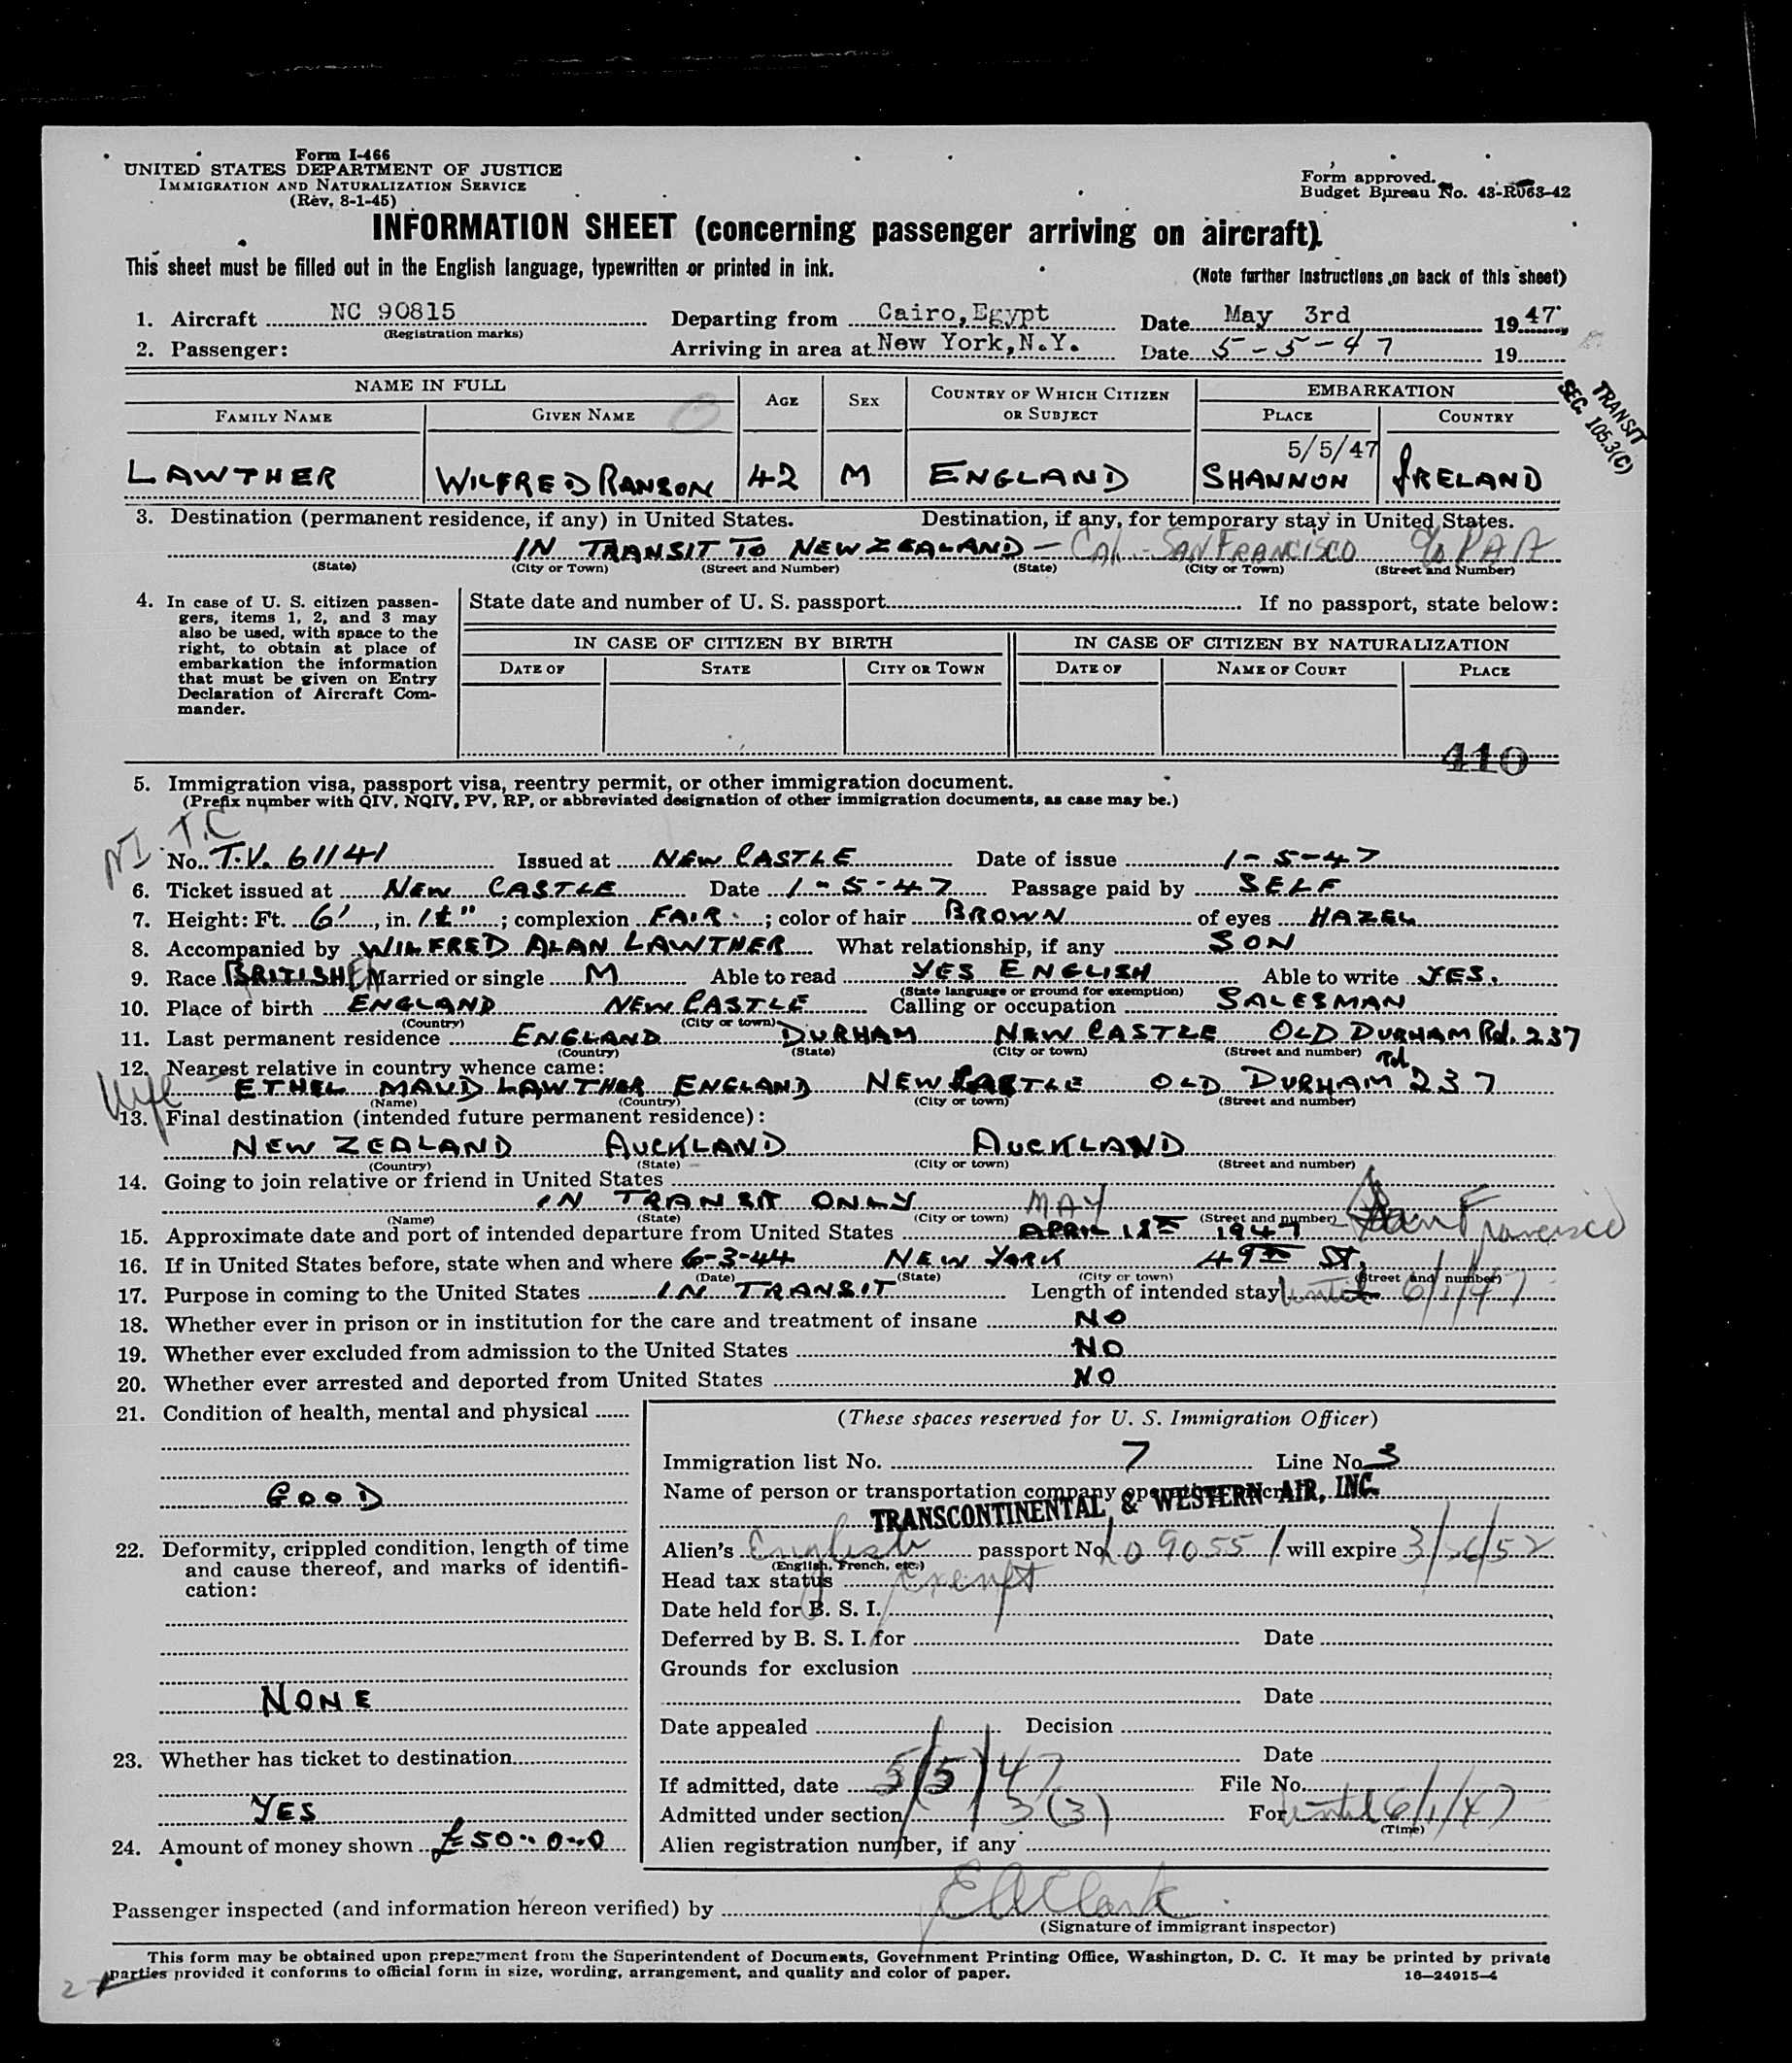 Form I-466
UNITED STATES DEPARTMENT OF JUSTICE
IMMIGRATION AND NATURALIZATION SERVICE
(Rev. 8-1-45)
Form approved.
Budget Bureau No. 43-R063-42
INFORMATION SHEET (concerning passenger arriving on aircraft)
This sheet must be filled out in the English language, typewritten or printed in ink.
(Note further instructions on back of this sheet)
1. Aircraft NC 90815 Departing from Cairo, Egypt Date May 3rd 1947
(Registration marks)
2. Passenger: Arriving in area at New York, N.Y. Date 5-5-47 19
TRANSIT
SEC. 105.3(C)
NAME IN FULL AGE SEX COUNTRY OF WHICH CITIZEN OR SUBJECT EMBARKATION
FAMILY NAME GIVEN NAME PLACE COUNTRY
5/5/47
LAWTHER WILFRED RANSON 42 M ENGLAND SHANNON IRELAND
3. Destination (permanent residence, if any) in United States. Destination, if any, for temporary stay in United States.
IN TRANSIT TO NEW ZEALAND - Cal. - SAN FRANCISCO c/o P A A
(State) (City or Town) (Street and Number) (State) (City or Town) (Street and Number)
4. In case of U. S. citizen passen-
gers, items 1, 2, and 3 may
also be used, with space to the
right, to obtain at place of
embarkation the information
that must be given on Entry
Declaration of Aircraft Com-
mander.
State date and number of U. S. passport If no passport, state below:
IN CASE OF CITIZEN BY BIRTH IN CASE OF CITIZEN BY NATURALIZATION
DATE OF STATE CITY OR TOWN DATE OF NAME OF COURT PLACE
410
5. Immigration visa, passport visa, reentry permit, or other immigration document.
(Prefix number with QIV, NQIV, PV, RP, or abbreviated designation of other immigration documents, as case may be.)
NI. T.C
No. T.V. 61141 Issued at NEW CASTLE Date of issue 1-5-47
6. Ticket issued at NEW CASTLE Date 1-5-47 Passage paid by SELF
7. Height: Ft. 6', in. 1½"; complexion FAIR; color of hair BROWN of eyes HAZEL
8. Accompanied by WILFRED ALAN LAWTHER What relationship, if any SON
9. Race BRITISH Married or single M Able to read YES ENGLISH Able to write YES.
(State language or ground for exemption)
10. Place of birth ENGLAND NEW CASTLE Calling or occupation SALESMAN
(Country) (City or town)
11. Last permanent residence ENGLAND DURHAM NEW CASTLE OLD DURHAM Rd. 237
(Country) (State) (City or town) (Street and number)
12. Nearest relative in country whence came:
Wife ETHEL MAUD LAWTHER ENGLAND NEW CASTLE OLD DURHAM Rd. 237
(Name) (Country) (City or town) (Street and number)
13. Final destination (intended future permanent residence):
NEW ZEALAND AUCKLAND AUCKLAND
(Country) (State) (City or town) (Street and number)
14. Going to join relative or friend in United States
IN TRANSIT ONLY
(Name) (State) (City or town) (Street and number)
MAY
15. Approximate date and port of intended departure from United States APRIL 18TH 1947 San Francisco
16. If in United States before, state when and where 6-3-44 NEW YORK 49TH ST.
(Date) (State) (City or town) (Street and number)
17. Purpose in coming to the United States IN TRANSIT Length of intended stay until 6/1/47
18. Whether ever in prison or in institution for the care and treatment of insane NO
19. Whether ever excluded from admission to the United States NO
20. Whether ever arrested and deported from United States NO
21. Condition of health, mental and physical
GOOD
22. Deformity, crippled condition, length of time
and cause thereof, and marks of identifi-
cation:
NONE
23. Whether has ticket to destination
YES
24. Amount of money shown £50-0-0
(These spaces reserved for U. S. Immigration Officer)
Immigration list No. 7 Line No. 3
Name of person or transportation company operating aircraft
TRANSCONTINENTAL & WESTERN AIR, INC.
Alien's English passport No. LO 9055 will expire 3/6/52
(English, French, etc.)
Head tax status Exempt
Date held for B. S. I.
Deferred by B. S. I. for Date
Grounds for exclusion
Date
Date appealed Decision
Date
If admitted, date 5/5/47 File No.
Admitted under section 3 (3) For until 6/1/47
(Time)
Alien registration number, if any
Passenger inspected (and information hereon verified) by E A Clark
(Signature of immigrant inspector)
This form may be obtained upon prepayment from the Superintendent of Documents, Government Printing Office, Washington, D. C. It may be printed by private
parties provided it conforms to official form in size, wording, arrangement, and quality and color of paper.
16—24915-4